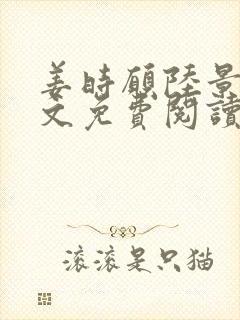 姜時願陸景
文免費閱讀
滚滚是只猫